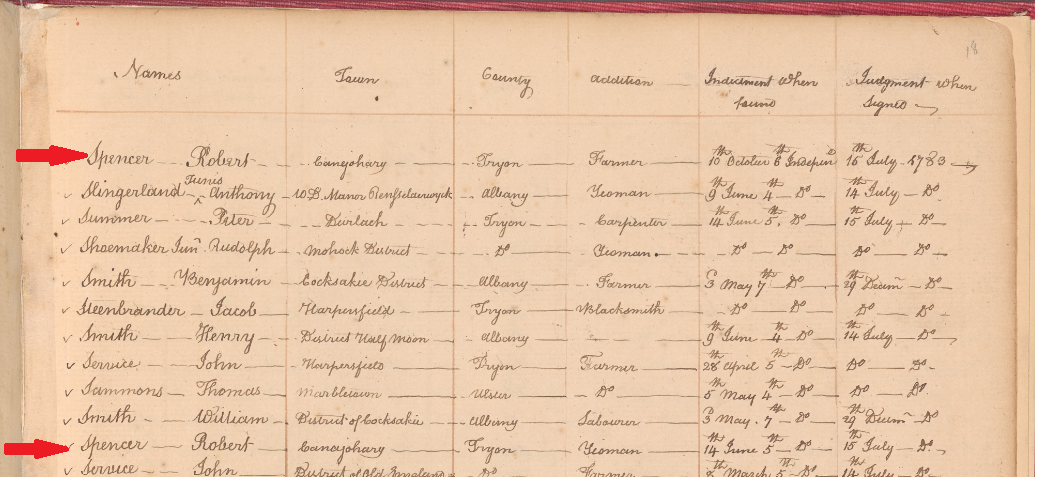 18
Names Town County Addition Indictment when found Judgment when signed
Spencer Robert Canajohary Tryon Farmer 10th October 6 Indepen 15th July 1783
Slingerland Tunis Anthony W D. Manor Renselaerwyck Albany Yeoman 9th June 4th Do 14th July Do
Summer Peter Durlach Tryon Carpenter 14th June 5th Do 15th July Do
Shoemaker Junr. Rudolph Mohock District Do Yeoman Do Do Do Do
Smith Benjamin Cocksakie District Albany Farmer 3 May 7th Do 29th Decim Do
Steenbrander Jacob Harpersfield Tryon Blacksmith Do Do Do Do
Smith Henry District Half Moon Albany 9th June 4th Do 14th July Do
Service John Harpersfield Tryon Farmer 28th April 5th Do Do Do
Sammons Thomas Marbletown Ulster Do 5th May 4th Do Do Do
Smith William District of Cocksakie Albany Labourer 3 May 7th Do 29th Decim Do
Spencer Robert Canajohary Tryon Yeoman 14th June 5th Do 15th July Do
Service John District of Old England Do Farmer 8th March 5th Do 14th July Do